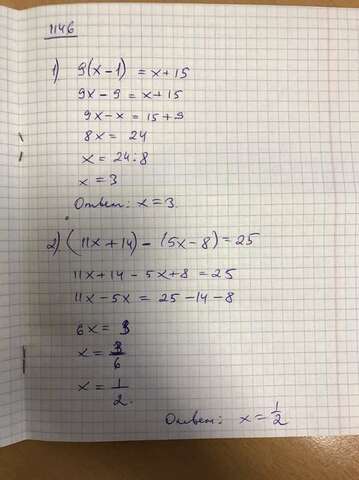 1146
1) 9(x-1) = x+15
9x-9 = x+15
9x-x = 15+9
8x = 24
x = 24:8
x = 3
Ответ: x=3.
2) (11x+14) - (5x-8) = 25
11x+14-5x+8 = 25
11x-5x = 25-14-8
6x = 3
x = 3/6
x = 1/2.
Ответ: x = 1/2